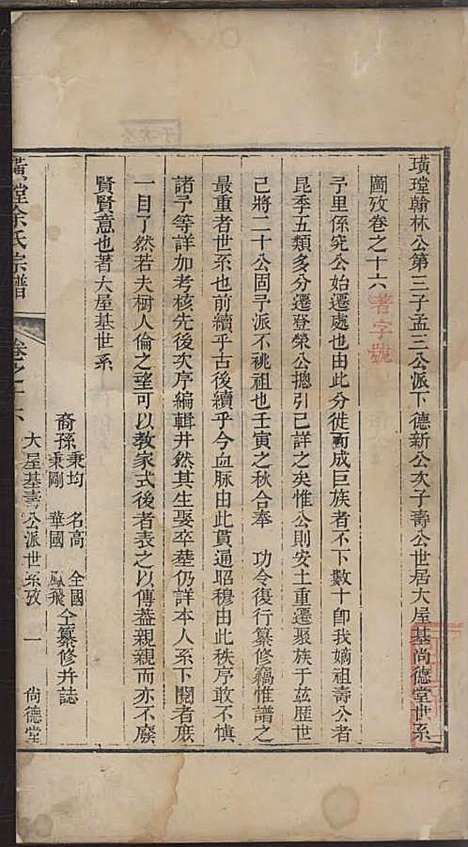 璜瑝翰林公第三子孟三公派下德新公次子壽公世居大屋基尚德堂世系
圖攷卷之十六
著字號
予里係究公始遷處也由此分徙而成巨族者不下數十卽我嫡祖壽公者
昆季五類多分遷登榮公揔引己詳之矣惟公則安土重遷聚族于茲歷世
己將二十公固予派不祧祖也壬寅之秋合奉 功令復行纂修竊惟譜之
最重者世系也前續乎古後續乎今血脉由此貫通昭穆由此秩序敢不慎
諸予等詳加考核先後次序編輯井然其生娶卒塟仍詳本人系下閱者庻
一目了然若夫樹人倫之望可以教家式後者表之以傳葢親親而亦不廢
賢賢意也著大屋基世系
裔孫秉均 名高 仝國
秉剛 華國 鳳飛 仝纂修并誌
璜瑝余氏宗譜 卷之十六 大屋基壽公派世系攷 一 尚德堂